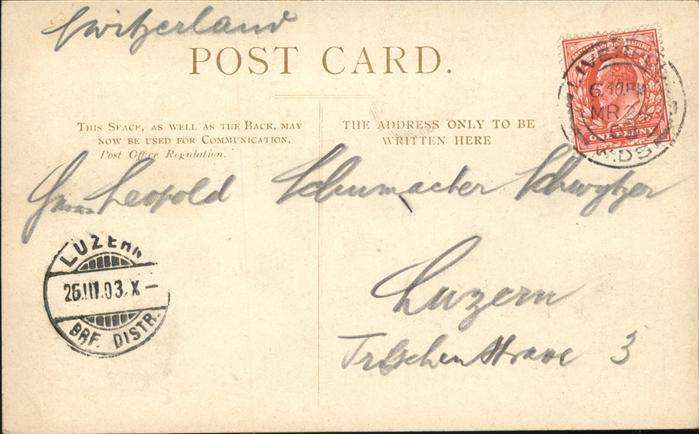 Switzerland
POST CARD.
THIS SPACE, AS WELL AS THE BACK, MAY
NOW BE USED FOR COMMUNICATION.
Post Office Regulation.
THE ADDRESS ONLY TO BE
WRITTEN HERE
LIVERPOOL
6.10PM
MR
W.DS
ONE PENNY
Leopold Schumacher Schwytzer
LUZERN
25.III.03.X–
BRF. DISTR.
Luzern
3